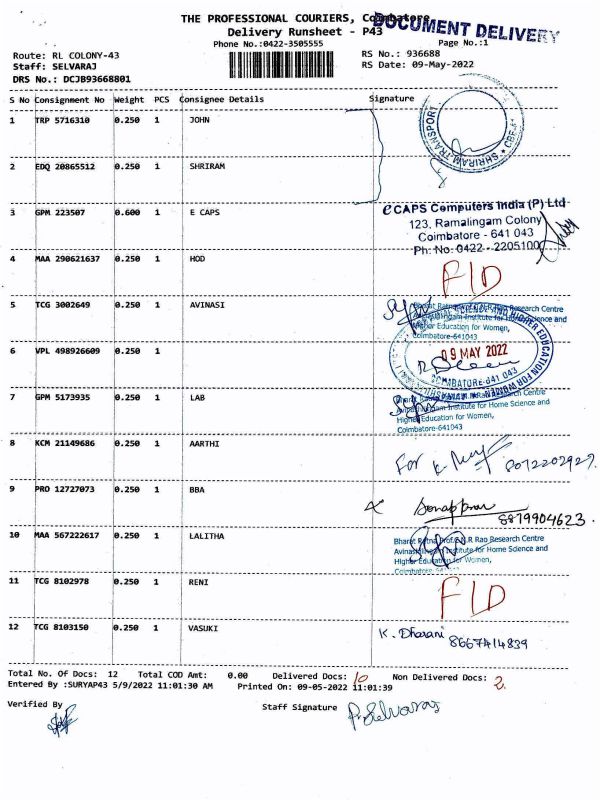 THE PROFESSIONAL COURIERS, Coimbatore
DOCUMENT DELIVERY
Delivery Runsheet - P43
Phone No.:0422-3505555
Page No.:1
Route: RL COLONY-43
RS No.: 936688
Staff: SELVARAJ
RS Date: 09-May-2022
DRS No.: DCJB93668801
S No Consignment No Weight PCS Consignee Details Signature
1 TRP 5716310 0.250 1 JOHN
SHRIRAM TRANSPORT
2 EDQ 20865512 0.250 1 SHRIRAM
3 GPM 223507 0.600 1 E CAPS
eCAPS Computers India (P) Ltd
123, Ramalingam Colony
Coimbatore - 641 043
Ph: No: 0422 - 2205100
4 MAA 290621637 0.250 1 HOD
FID
5 TCG 3002649 0.250 1 AVINASI
Research Centre
Higher Education for Women,
Coimbatore-641043
6 VPL 498926609 0.250 1
09 MAY 2022
COIMBATORE-641 043
7 GPM 5173935 0.250 1 LAB
Institute for Home Science and
Higher Education for Women,
Coimbatore-641043
8 KCM 21149686 0.250 1 AARTHI
For K. 8072202927.
9 PRO 12727073 0.250 1 BBA
8879904623.
10 MAA 567222617 0.250 1 LALITHA
Bharat Ratna Prof.C.N.R Rao Research Centre
Avinashilingam Institute for Home Science and
Higher Education for Women,
Coimbatore
11 TCG 8102978 0.250 1 RENI
FID
12 TCG 8103150 0.250 1 VASUKI
K. Dharani 8667414839
Total No. Of Docs: 12 Total COD Amt: 0.00 Delivered Docs: 10 Non Delivered Docs: 2.
Entered By :SURYAP43 5/9/2022 11:01:30 AM Printed On: 09-05-2022 11:01:39
Verified By
Staff Signature P. Selvaraj